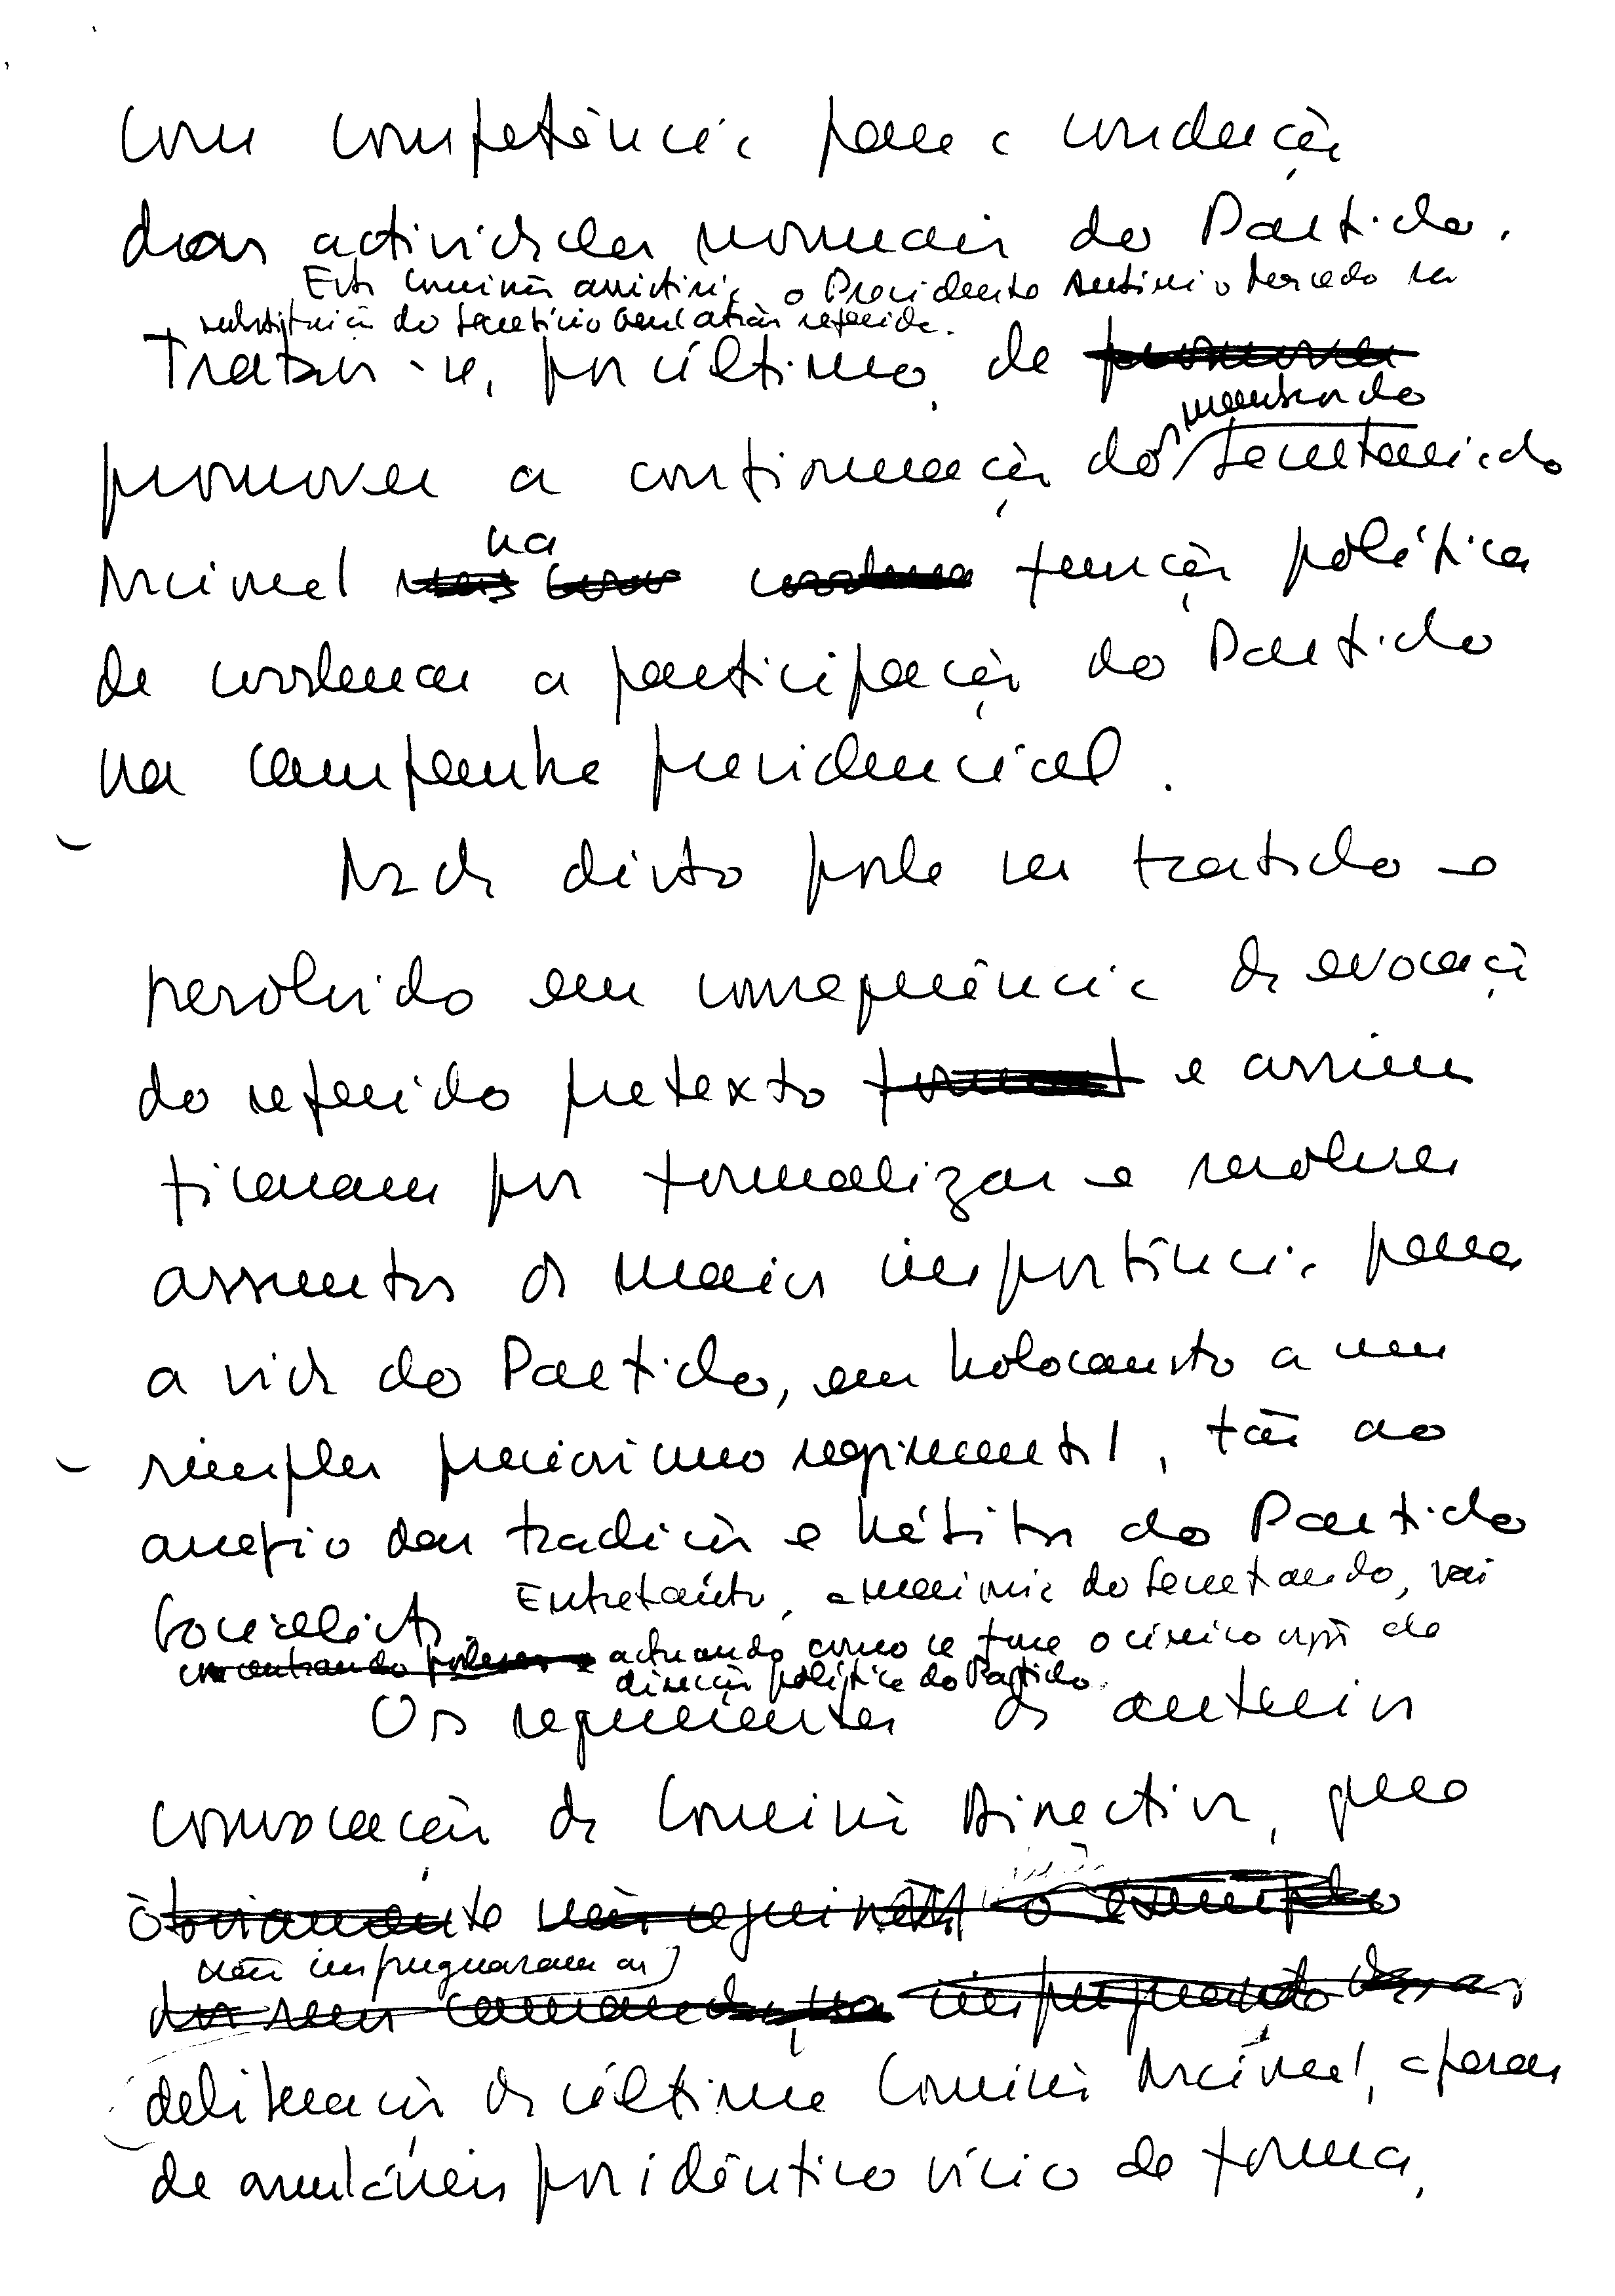 com competência para a condução
das actividades normais do Partido.
Esta Comissão assistiria o Presidente na
substituição do Secretário Geral atrás referida.
Tratava-se, por último, de
membros do
promover a confirmação dos Secretariado
Nacional na função política
de coordenar a participação do Partido
na campanha presidencial.
Nada disto pode ser tratado e
resolvido em consequência da evocação
do referido pretexto e assim
ficaram por formalizar e resolver
assuntos da maior importância para
a vida do Partido, em holocausto a um
simples preciosismo regimental, tão ao
arrepio das tradições e hábitos do Partido
Socialista. Entretanto, a maioria do Secretariado, vai
actuando como se fora o único órgão de
direcção política do Partido.
Os requerentes da anterior
convocação da Comissão Directiva, que
não impugnaram as
deliberações da última Comissão Nacional, apesar
de anuláveis por idêntico vício de forma,